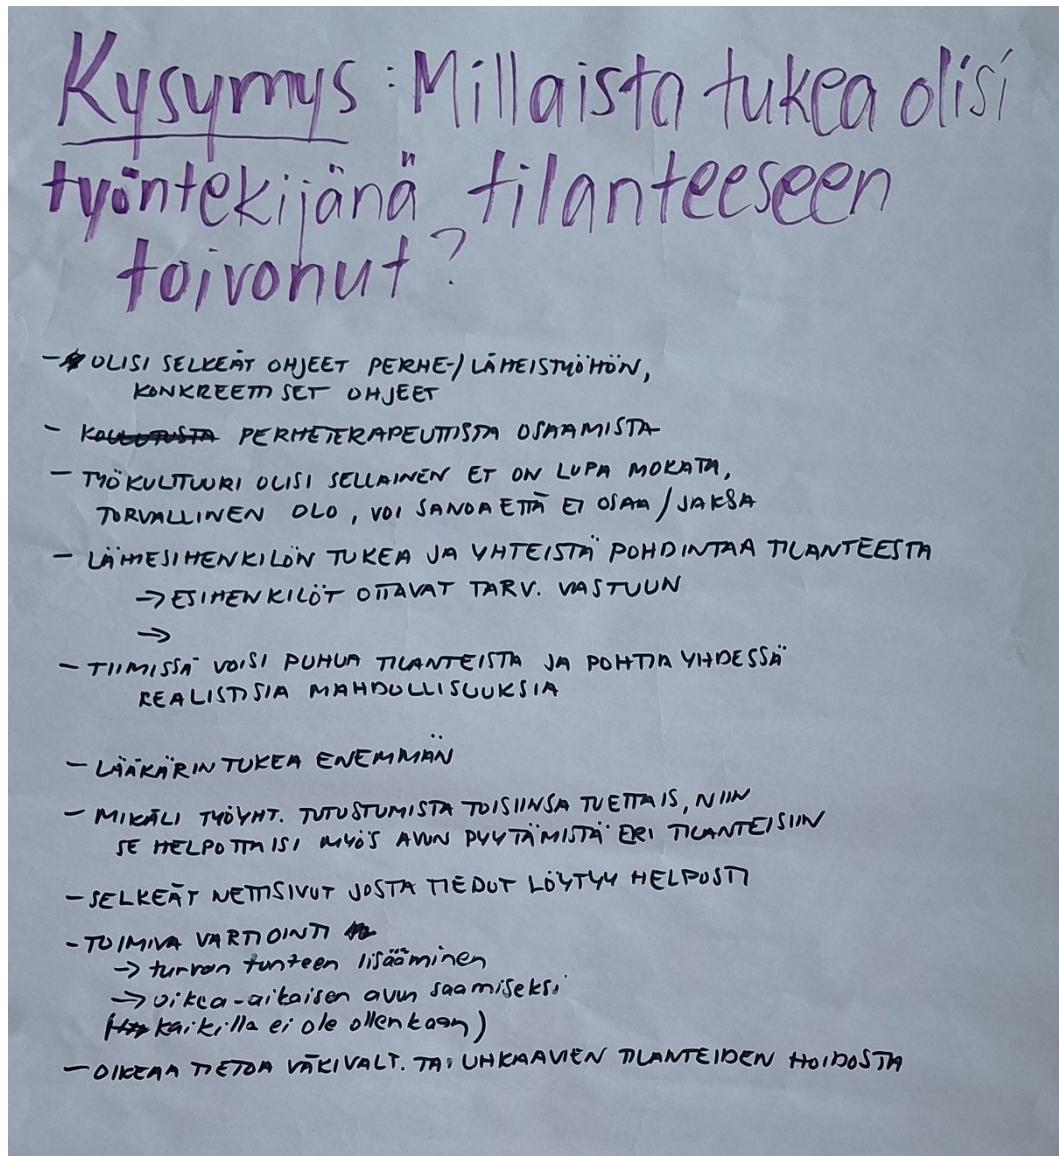 Kysymys : Millaista tukea olisi
työntekijänä tilanteeseen
toivonut ?
- OLISI SELKEÄT OHJEET PERHE-/LÄHEISTYÖHÖN,
KONKREETTISET OHJEET
- KOULUTUSTA PERHETERAPEUTTISTA OSAAMISTA
- TYÖKULTTUURI OLISI SELLAINEN ET ON LUPA MOKATA,
TURVALLINEN OLO, VOI SANOA ETTÄ EI OSAA / JAKSA
- LÄHIESIHENKILÖN TUKEA JA YHTEISTÄ POHDINTAA TILANTEESTA
→ ESIHENKILÖT OTTAVAT TARV. VASTUUN
→
- TIIMISSÄ VOISI PUHUA TILANTEISTA JA POHTIA YHDESSÄ
REALISTISIA MAHDOLLISUUKSIA
- LÄÄKÄRIN TUKEA ENEMMÄN
- MIKÄLI TYÖYHT. TUTUSTUMISTA TOISIINSA TUETTAIS, NIIN
SE HELPOTTAISI MYÖS AVUN PYYTÄMISTÄ ERI TILANTEISIIN
- SELKEÄT NETTISIVUT JOSTA TIEDOT LÖYTYY HELPOSTI
- TOIMIVA VARTIOINTI
→ turvan tunteen lisääminen
→ oikea-aikaisen avun saamiseksi
( kaikilla ei ole ollenkaan )
- OIKEAA TIETOA VÄKIVALT. TAI UHKAAVIEN TILANTEIDEN HOIDOSTA